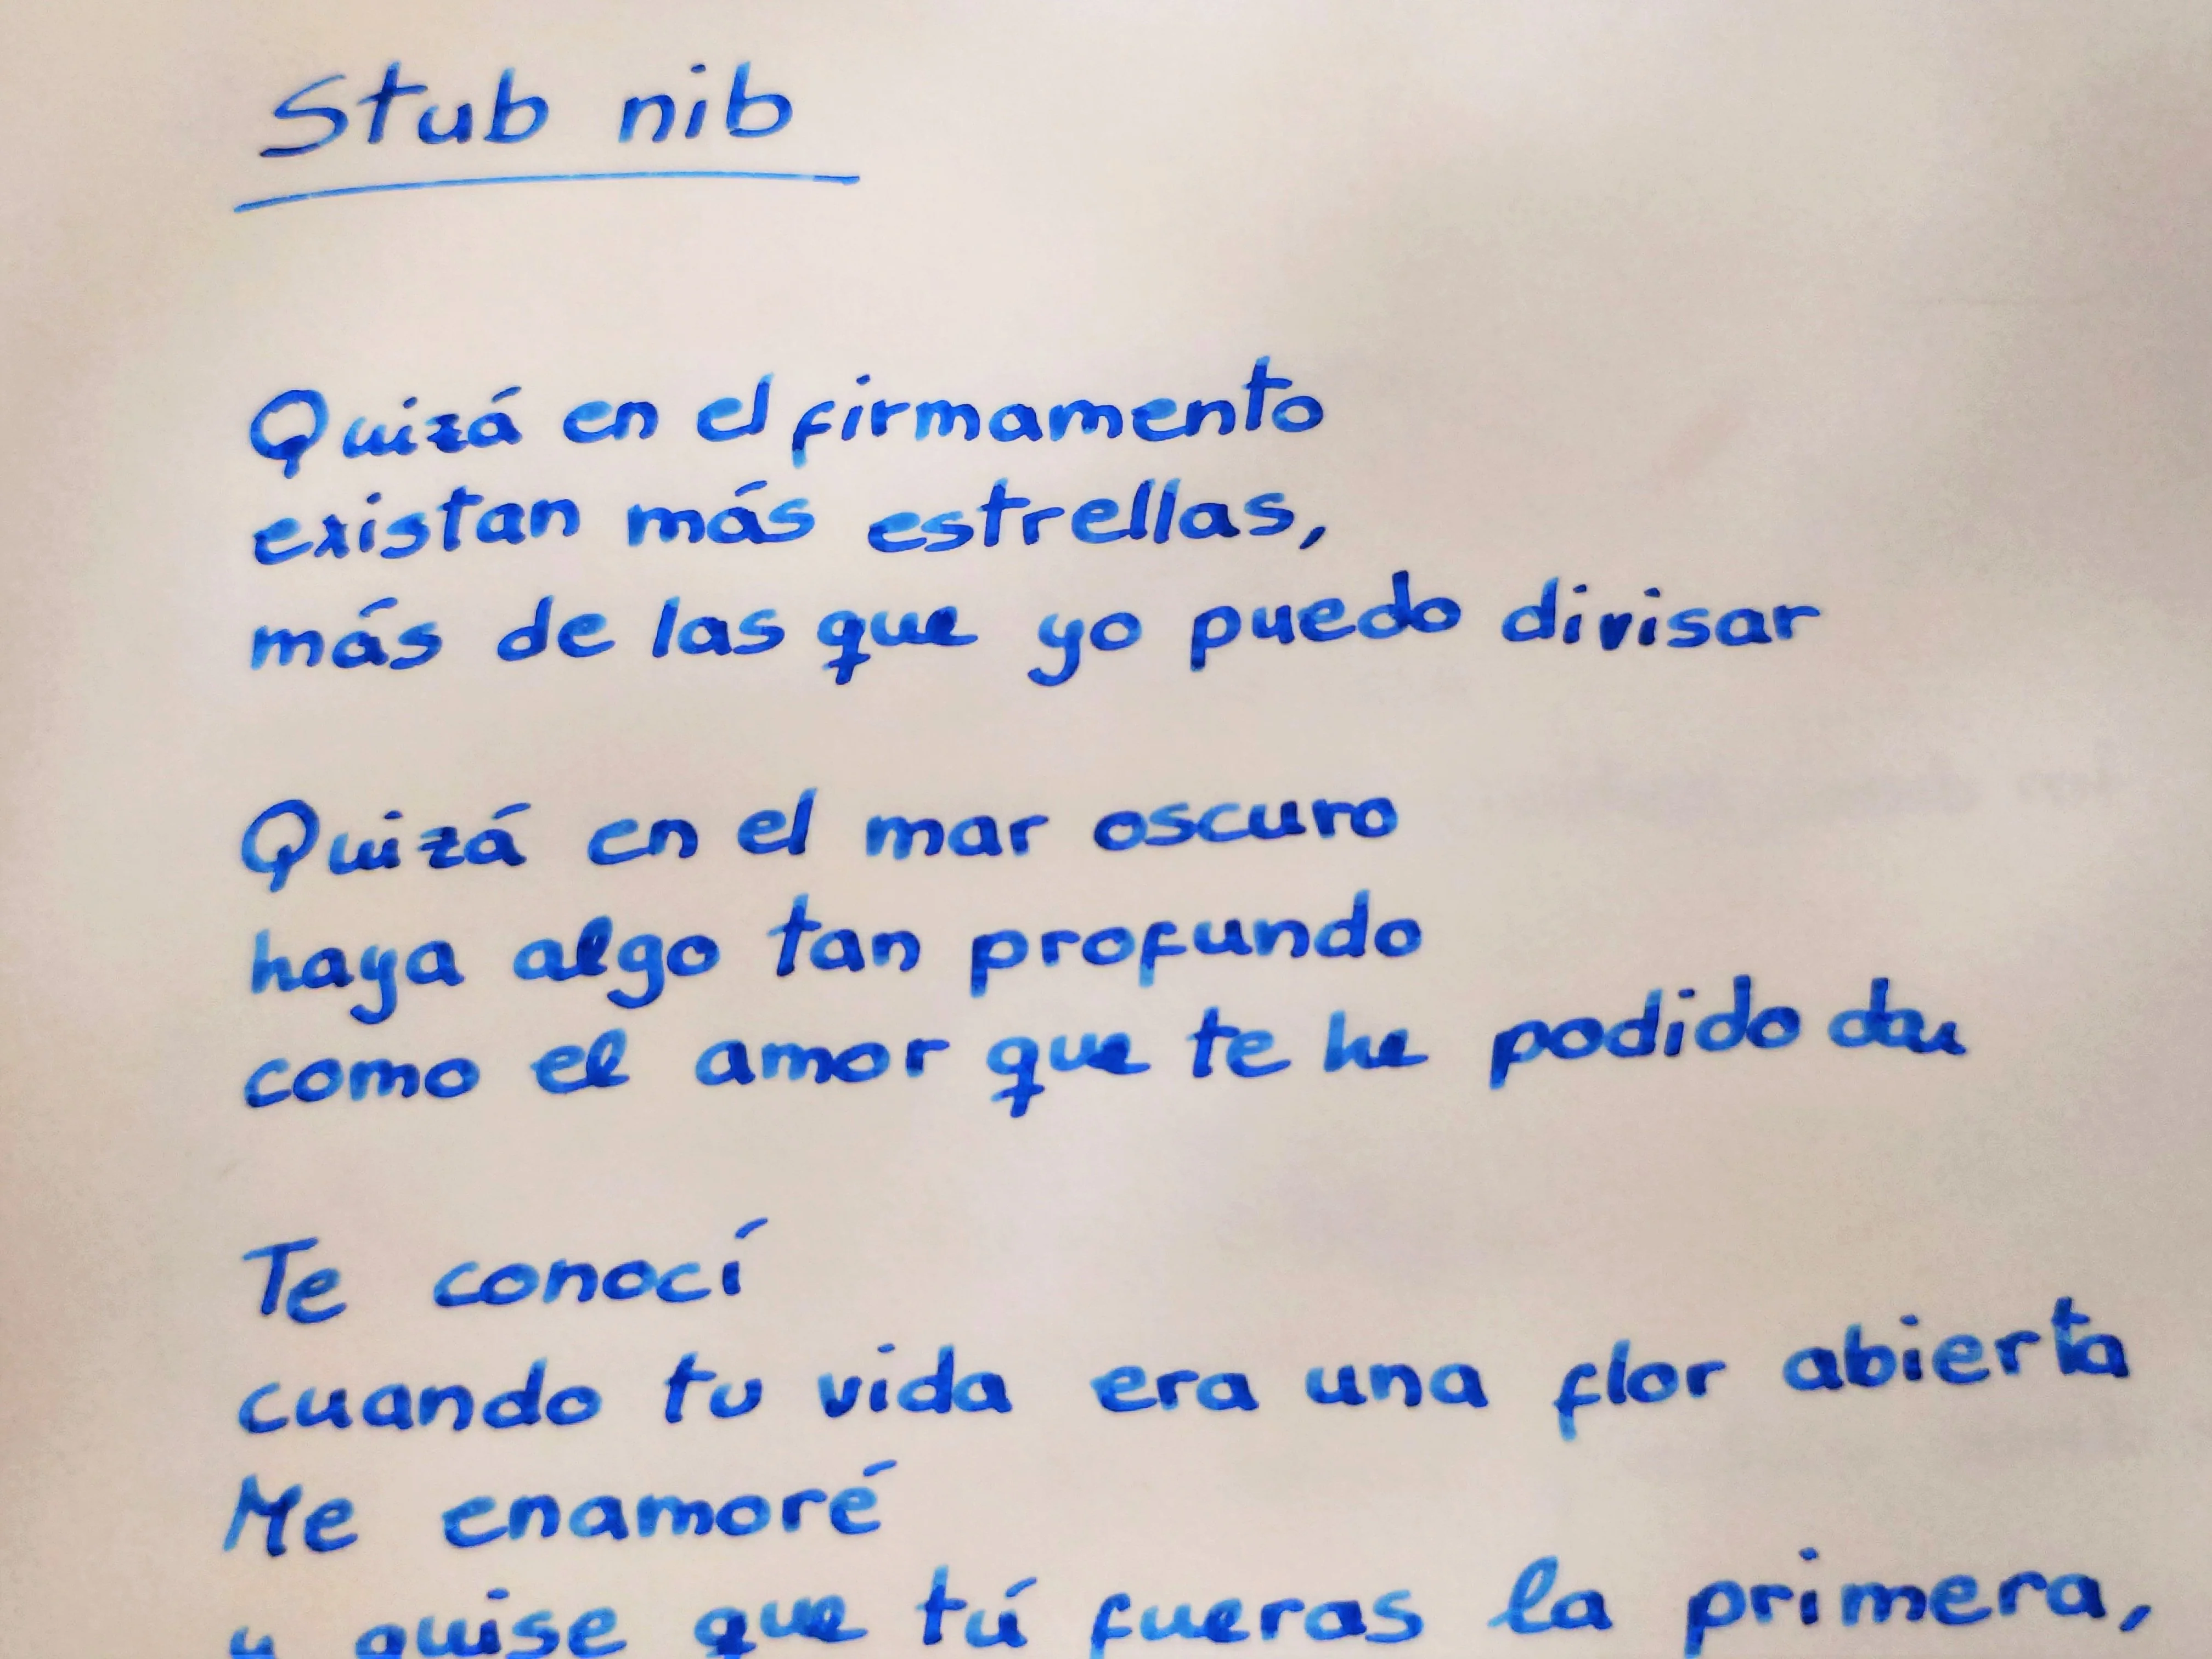 Stub nib
Quizá en el firmamento
existan más estrellas,
más de las que yo puedo divisar
Quizá en el mar oscuro
haya algo tan profundo
como el amor que te he podido dar
Te conocí
cuando tu vida era una flor abierta
Me enamoré
y quise que tú fueras la primera,